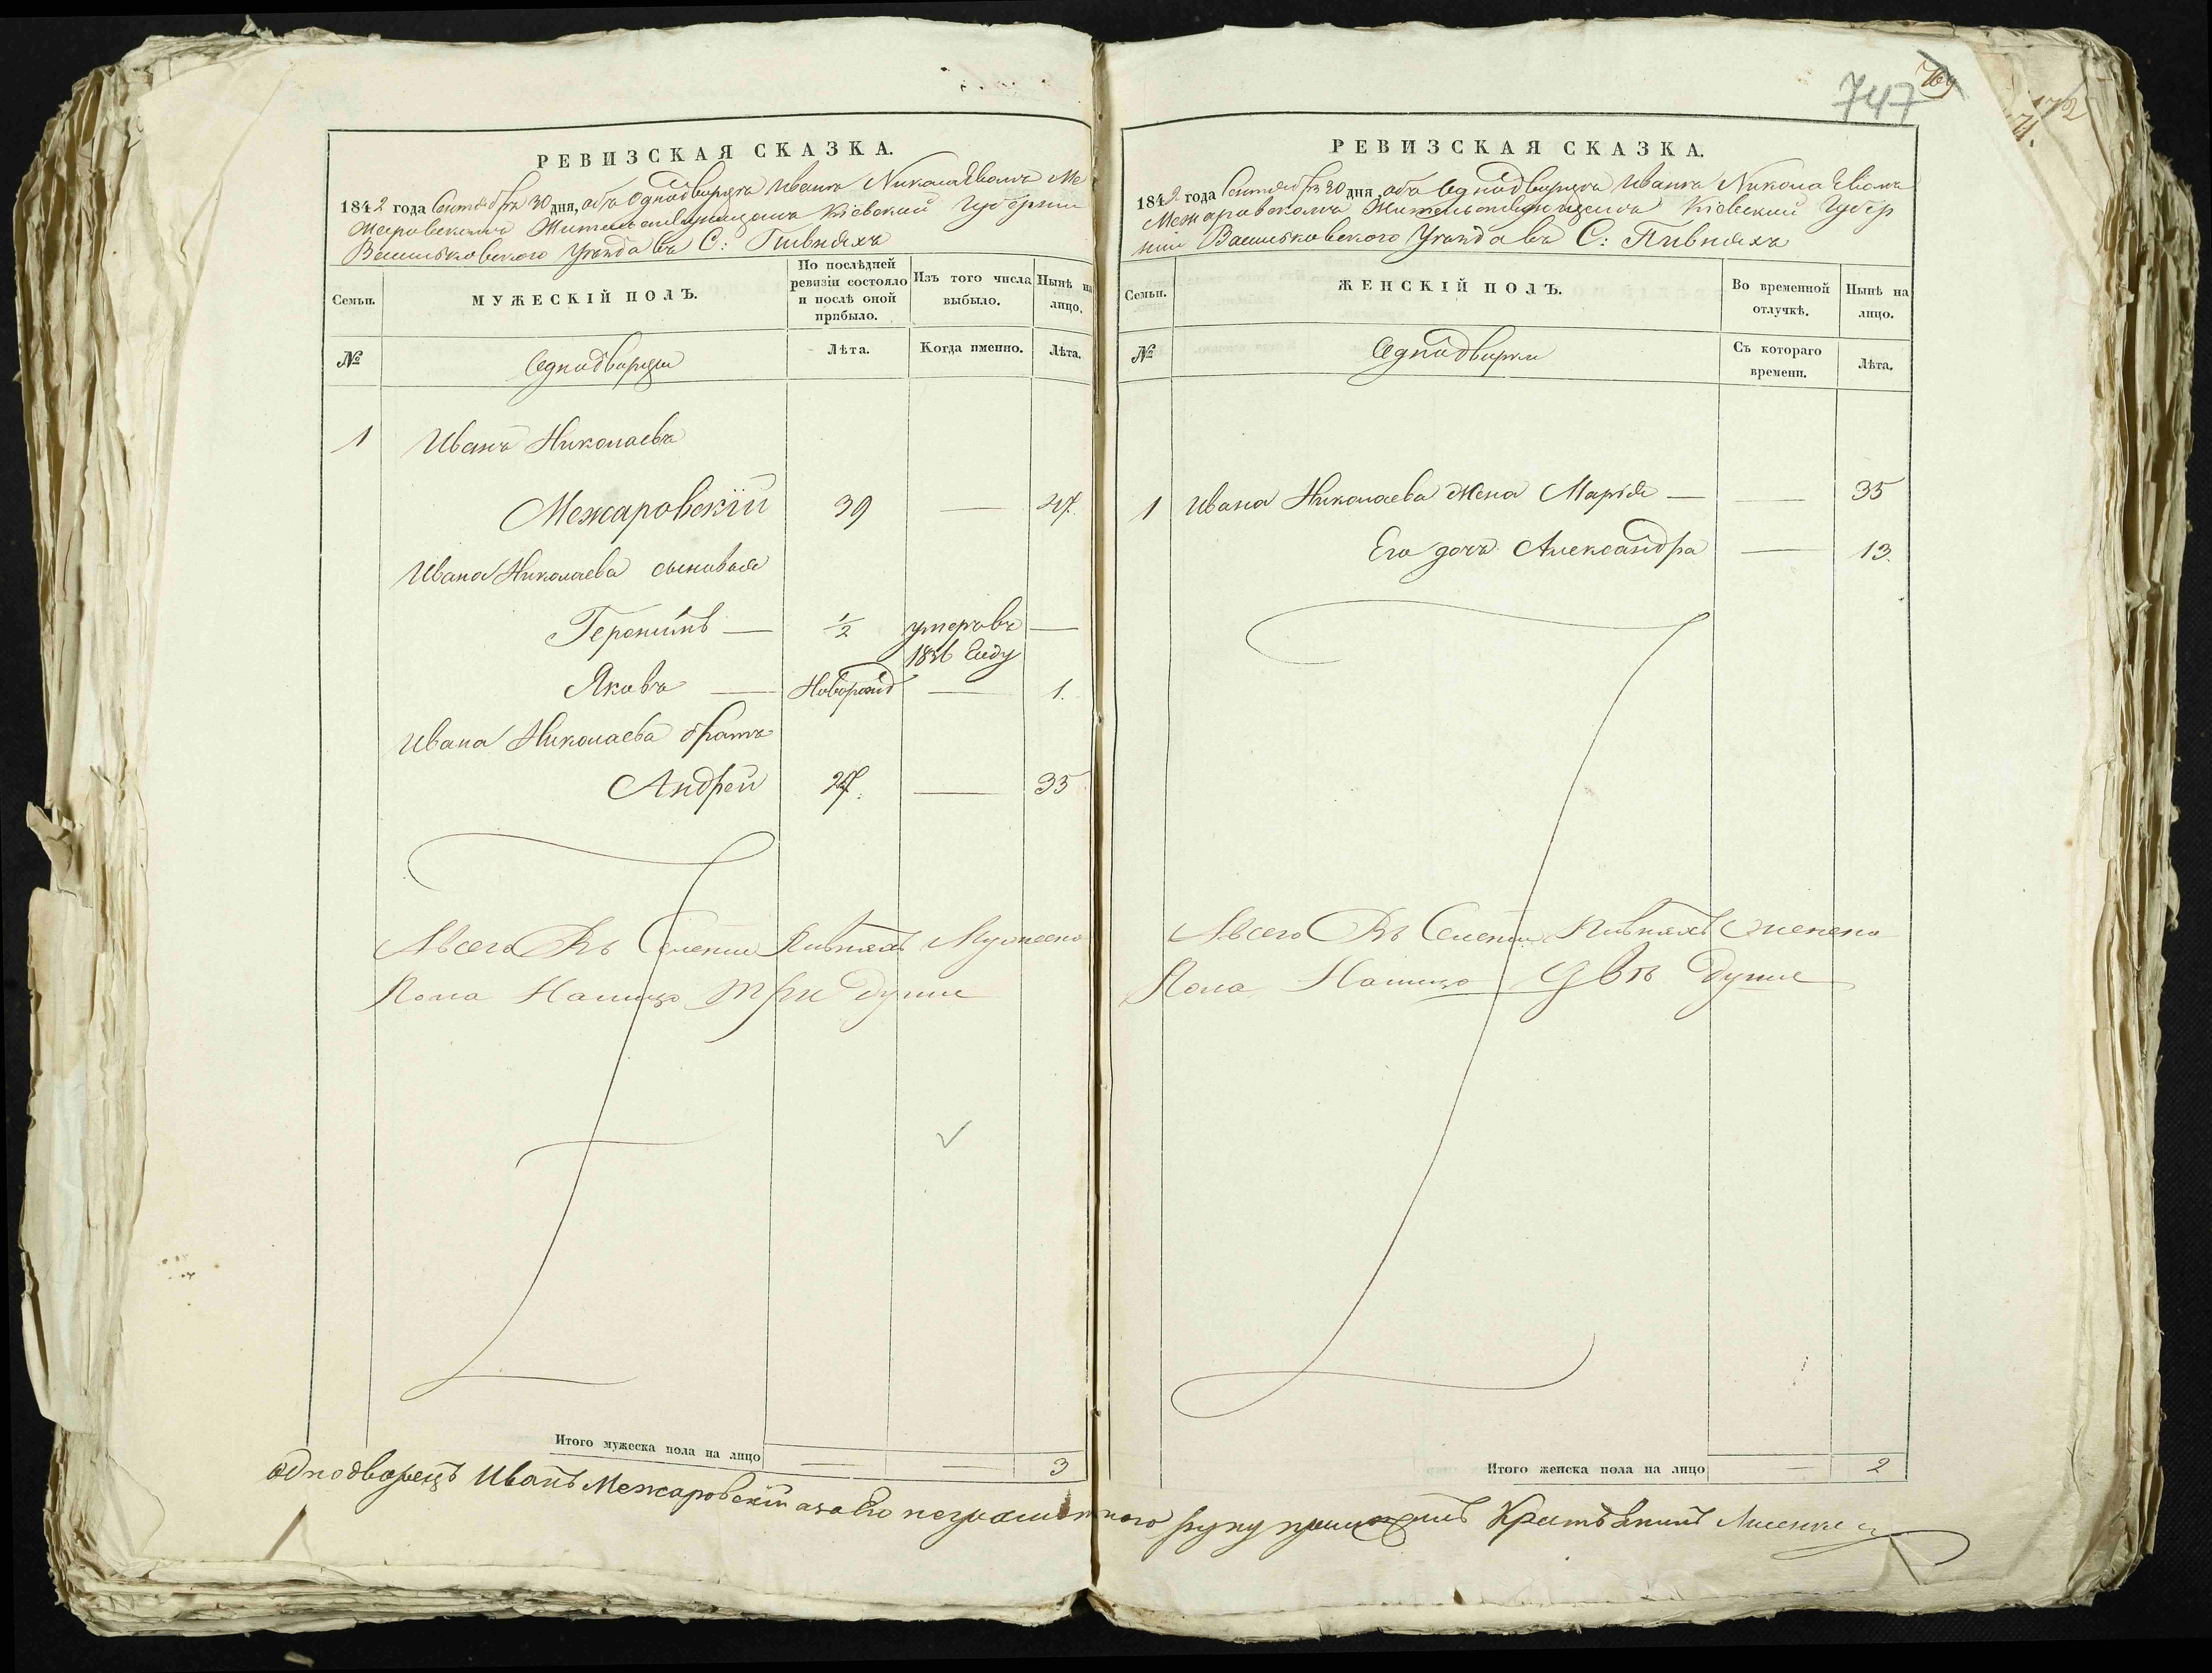 РЕВИЗСКАЯ СКАЗКА.
1842 года Сентября 30 дня, объ Однодворцѣ Иванѣ Николаевомъ Ме
жаровскомъ Жительствующемъ Кіевской Губерніи
Васильковскаго Уѣзда въ С: Пивняхъ
Семьи.
МУЖЕСКІЙ ПОЛЪ.
По послѣдней ревизіи состояло и послѣ оной прибыло.
Изъ того числа выбыло.
Нынѣ на лицо.
№
Однодворцы
Лѣта.
Когда именно.
Лѣта.
1 Иванъ Николаевъ
Межаровскій 39 — 47.
Ивана Николаева сыновья
Геронимъ — 1/2 умеръ въ —
1836 Году
Яковъ — Новорожд — 1.
Ивана Николаева братъ
Андрей 27. — 35
Авсего Въ Селеніи Пивняхъ Мужеска
Пола Налицо три души
Итого мужеска пола на лицо — — 3
747
769
172
РЕВИЗСКАЯ СКАЗКА.
1842 года Сентября 30 дня, объ Однодворцѣ Иванѣ Николаевомъ
Межаровскомъ Жительствующемъ Кіевской Губер
ніи Васильковскаго Уѣзда въ С: Пивняхъ
Семьи.
ЖЕНСКІЙ ПОЛЪ.
Во временной отлучкѣ.
Нынѣ на лицо.
№
Однодворки
Съ котораго времени.
Лѣта.
1 Ивана Николаева жена Марія — — 35
Его дочь Александра — 13.
Авсего Въ Селеніи Пивняхъ женска
Пола Налицо Двѣ души
Итого женска пола на лицо — 2
однодворецъ Иванъ Межаровскій а за его неграмотного руку приложилъ